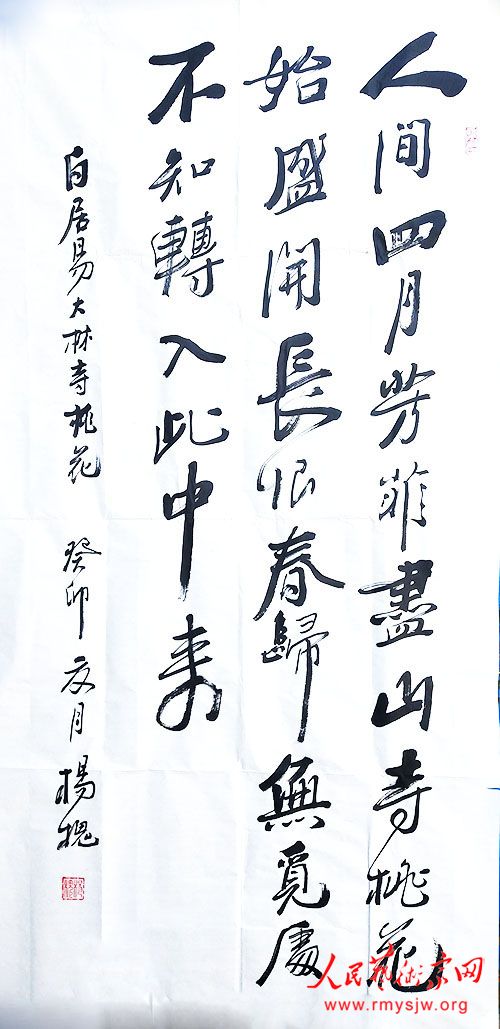 人间四月芳菲盡山寺桃花
始盛開長恨春歸無覓處
不知轉入此中来
白居易大林寺桃花 癸卯 夏月 楊槐
人民艺术家网
www.rmysjw.org